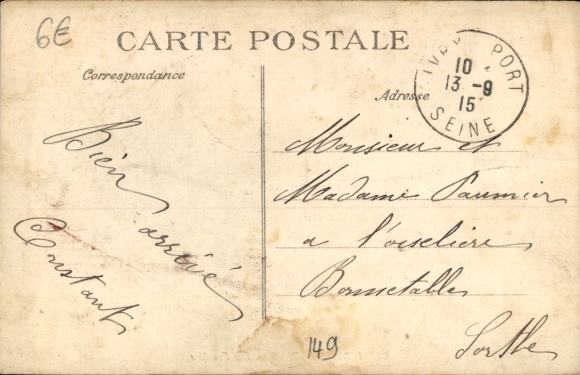 6€
CARTE POSTALE
Correspondance
Adresse
IVRY PORT
10
13 - 9
15
SEINE
Bien arrivé
Constant
Monsieur et
Madame Paumier
a l'oiselière
Bonnetable
Sarthe
149